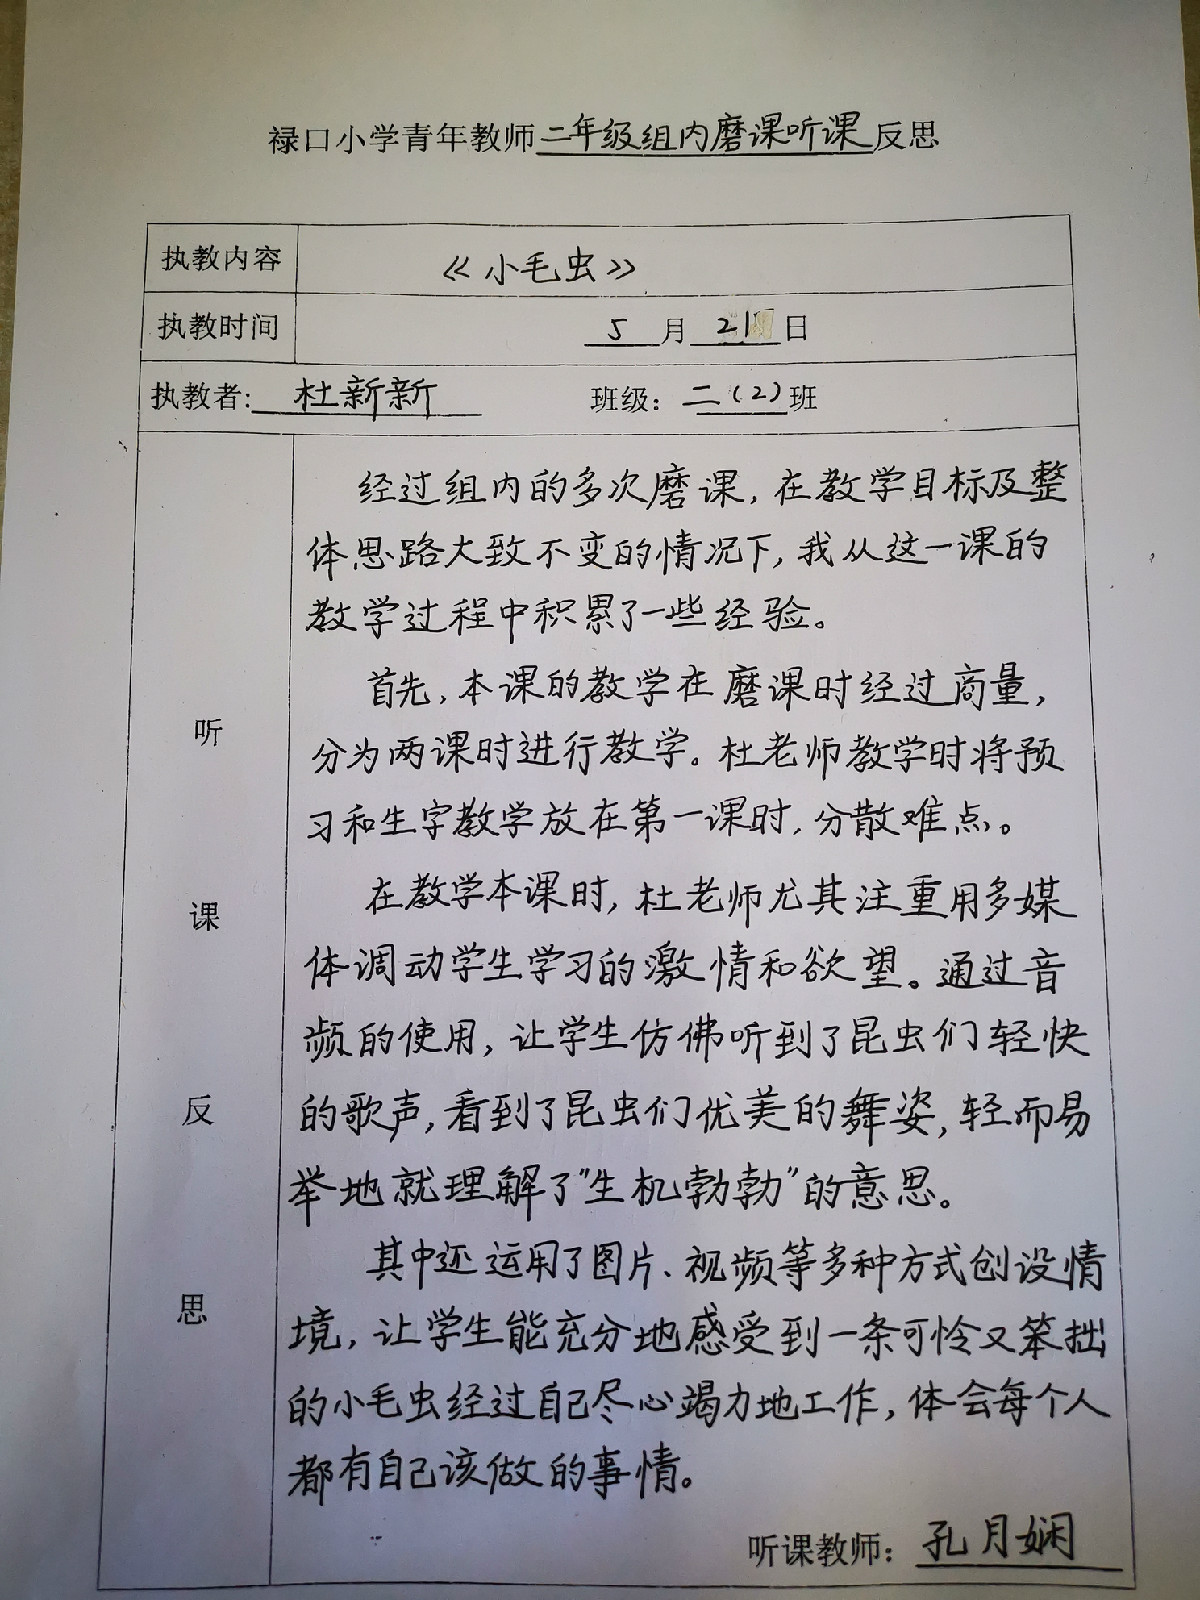 禄口小学青年教师二年级组内磨课听课反思
执教内容 《小毛虫》
执教时间 5月21日
执教者:杜新新 班级：二(2)班
听课反思
经过组内的多次磨课，在教学目标及整
体思路大致不变的情况下，我从这一课的
教学过程中积累了一些经验。
首先，本课的教学在磨课时经过商量，
分为两课时进行教学。杜老师教学时将预
习和生字教学放在第一课时，分散难点。
在教学本课时，杜老师尤其注重用多媒
体调动学生学习的激情和欲望。通过音
频的使用，让学生仿佛听到了昆虫们轻快
的歌声，看到了昆虫们优美的舞姿，轻而易
举地就理解了"生机勃勃"的意思。
其中还运用了图片、视频等多种方式创设情
境，让学生能充分地感受到一条可怜又笨拙
的小毛虫经过自己尽心竭力地工作，体会每个人
都有自己该做的事情。
听课教师：孔月娴